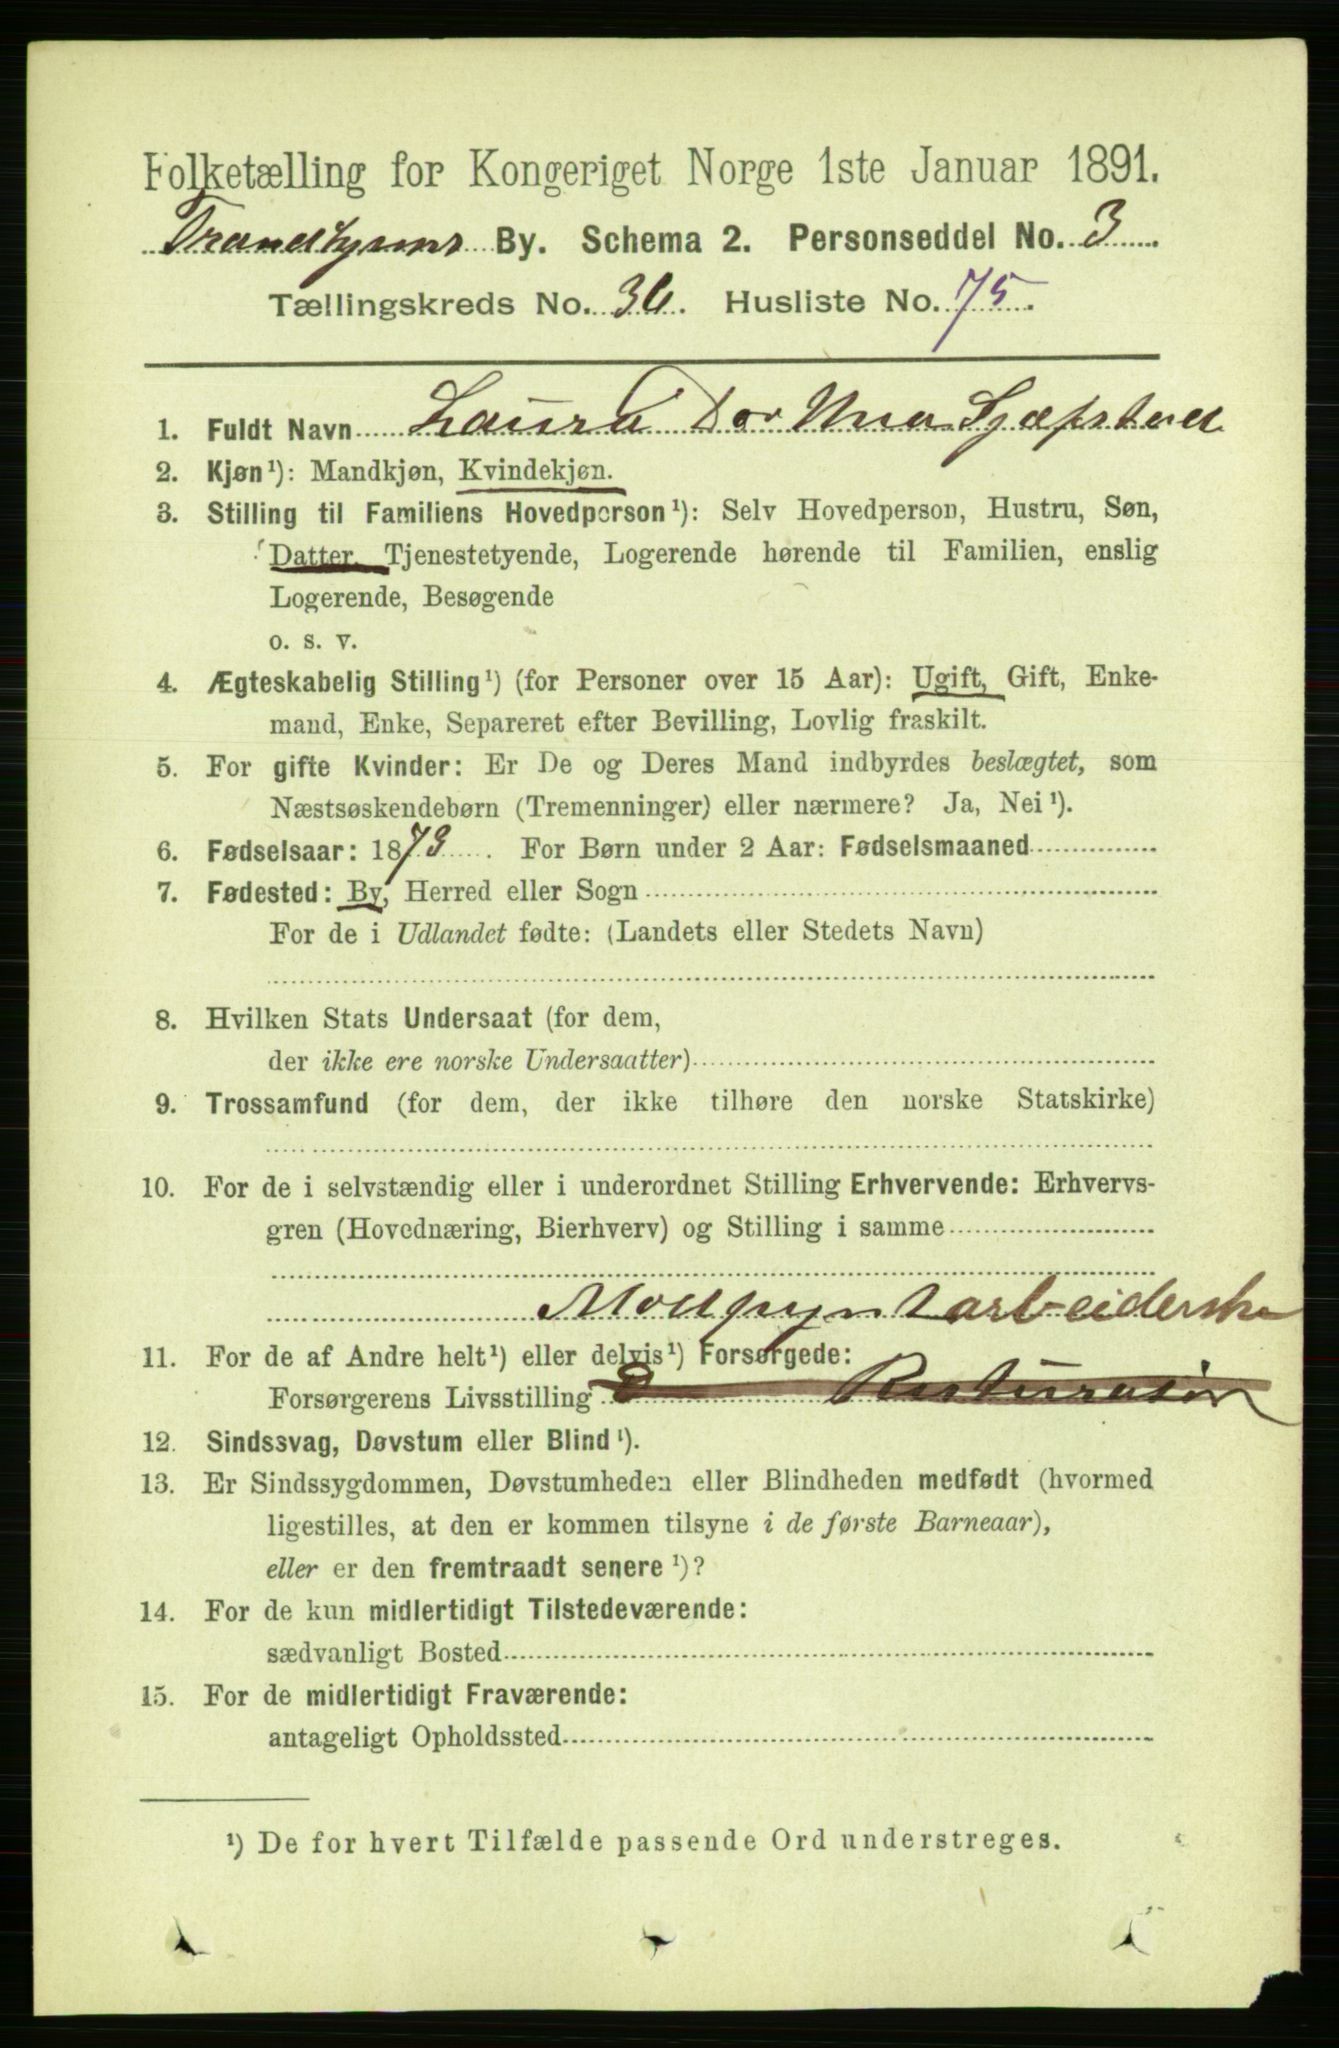 Folketælling for Kongeriget Norge 1ste Januar 1891.
Trondhjems By. Schema 2. Personseddel No. 3
Tællingskreds No. 36. Husliste No. 75.
1. Fuldt Navn Laura
2. Kjøn¹): Mandkjøn, Kvindekjøn.
3. Stilling til Familiens Hovedperson¹): Selv Hovedperson, Hustru, Søn,
Datter, Tjenestetyende, Logerende hørende til Familien, enslig
Logerende, Besøgende
o. s. v.
4. Ægteskabelig Stilling¹) (for Personer over 15 Aar): Ugift, Gift, Enke-
mand, Enke, Separeret efter Bevilling, Lovlig fraskilt.
5. For gifte Kvinder: Er De og Deres Mand indbyrdes beslægtet, som
Næstsøskendebørn (Tremenninger) eller nærmere? Ja, Nei¹).
6. Fødselsaar: 1873. For Børn under 2 Aar: Fødselsmaaned
7. Fødested: By, Herred eller Sogn
For de i Udlandet fødte: (Landets eller Stedets Navn)
8. Hvilken Stats Undersaat (for dem,
der ikke ere norske Undersaatter)
9. Trossamfund (for dem, der ikke tilhøre den norske Statskirke)
10. For de i selvstændig eller i underordnet Stilling Erhvervende: Erhvervs-
gren (Hovednæring, Bierhverv) og Stilling i samme
Modpyntarbeiderske
11. For de af Andre helt¹) eller delvis¹) Forsørgede:
Forsørgerens Livsstilling
12. Sindssvag, Døvstum eller Blind¹).
13. Er Sindssygdommen, Døvstumheden eller Blindheden medfødt (hvormed
ligestilles, at den er kommen tilsyne i de første Barneaar),
eller er den fremtraadt senere¹)?
14. For de kun midlertidigt Tilstedeværende:
sædvanligt Bosted
15. For de midlertidigt Fraværende:
antageligt Opholdssted
¹) De for hvert Tilfælde passende Ord understreges.